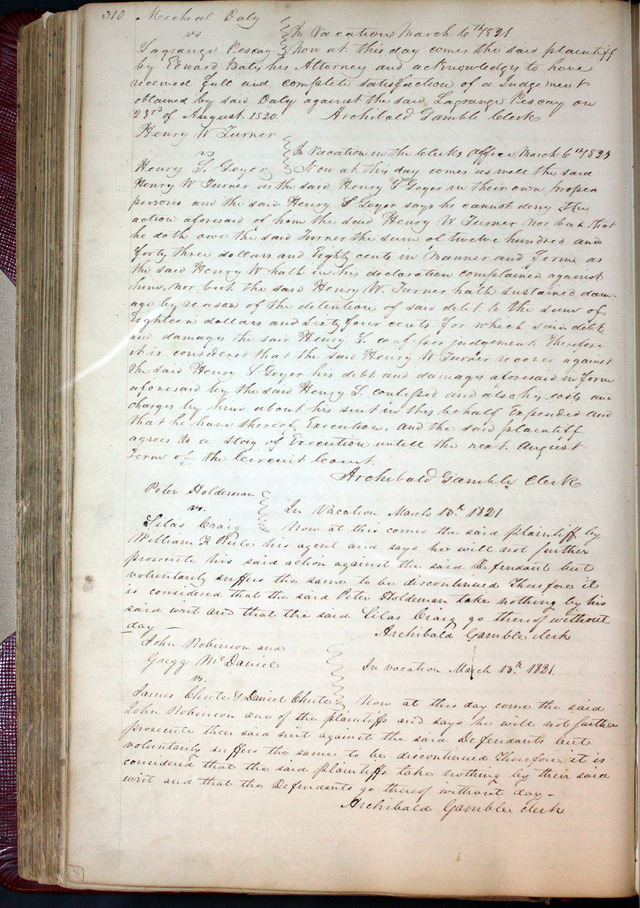 310 Micheal Daly
vs In Vacation March 6th 1821
Lagrange Pescay Now at this day comes the said plaintiff
by Edward Bates his Attorney and acknowledges to have
received full and complete satisfaction of a Judgement
obtained by said Daly against the said Lagrange Pescay on
23rd of August 1820. Archibald Gamble Clerk
Henry W Turner
vs In Vacation in the Clerks office March 6th 1821
Henry S. Geyer Now at this day comes as well the said
Henry W Turner as the said Henry S Geyer in their own proper
persons and the said Henry S Geyer says he cannot deny the
action aforesaid of him the said Henry W Turner nor but that
he doth owe the said Turner the sum of twelve hundred and
forty three dollars and Eighty cents in Manner and Form as
the said Henry W hath in his declaration complained against
him, nor but the said Henry W. Turner hath sustained dam-
age by reason of the detention of said debt to the sum of
Eighteen dollars and Sixty four cents for which said debt
and damages the said Henry S. confesses judgement. Therefore
it is considered that the said Henry W Turner recover against
the said Henry S Geyer his debt and damages aforesaid in form
aforesaid by the said Henry S. confessed and also his costs and
charges by him about his suit in this behalf Expended and
that he have thereof Execution, and the said plaintiff
agrees to a stay of Execution untill the next August
Term of the Circuit Court.
Archibald Gamble Clerk
Peter Holdeman
vs. In Vacation March 13th 1821
Silas Craig Now at this comes the said plaintiff by
William K his agent and says he will not further
prosecute his said action against the said Defendant but
voluntarily suffers the same to be discontinued Therefore it
is considered that the said Peter Holdeman take nothing by his
said writ and that the said Silas Craig go thereof without
day — Archibald Gamble clerk
John Robinson and
Gregg McDaniel In vacation March 13th 1821.
vs.
James Chute & Daniel Chute Now at this day come the said
John Robinson one of the plaintiffs and says he will not further
prosecute their said suit against the said Defendants but
voluntarily suffers the same to be discontinued Therefore it is
considered that the said plaintiffs take nothing by their said
writ and that the Defendants go thereof without day —
Archibald Gamble clerk